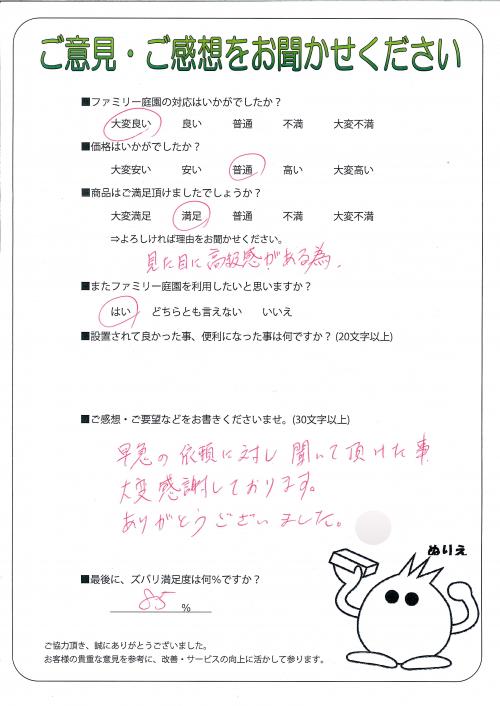 ご意見・ご感想をお聞かせください
■ファミリー庭園の対応はいかがでしたか？
大変良い 良い 普通 不満 大変不満
■価格はいかがでしたか？
大変安い 安い 普通 高い 大変高い
■商品はご満足頂けましたでしょうか？
大変満足 満足 普通 不満 大変不満
⇒よろしければ理由をお聞かせください。
見た目に高級感がある為.
■またファミリー庭園を利用したいと思いますか？
はい どちらとも言えない いいえ
■設置されて良かった事、便利になった事は何ですか？(20文字以上)
■ご感想・ご要望などをお書きくださいませ。(30文字以上)
早急の依頼に対し聞いて頂けた事
大変感謝しております。
ありがとうございました。
ぬりえ
■最後に、ズバリ満足度は何％ですか？
85 %
ご協力頂き、誠にありがとうございました。
お客様の貴重な意見を参考に、改善・サービスの向上に活かして参ります。